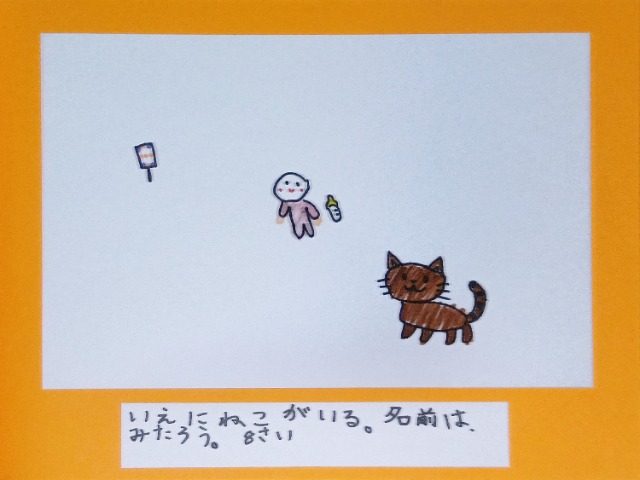 いえにねこがいる。名前は、
みたろう。8さい